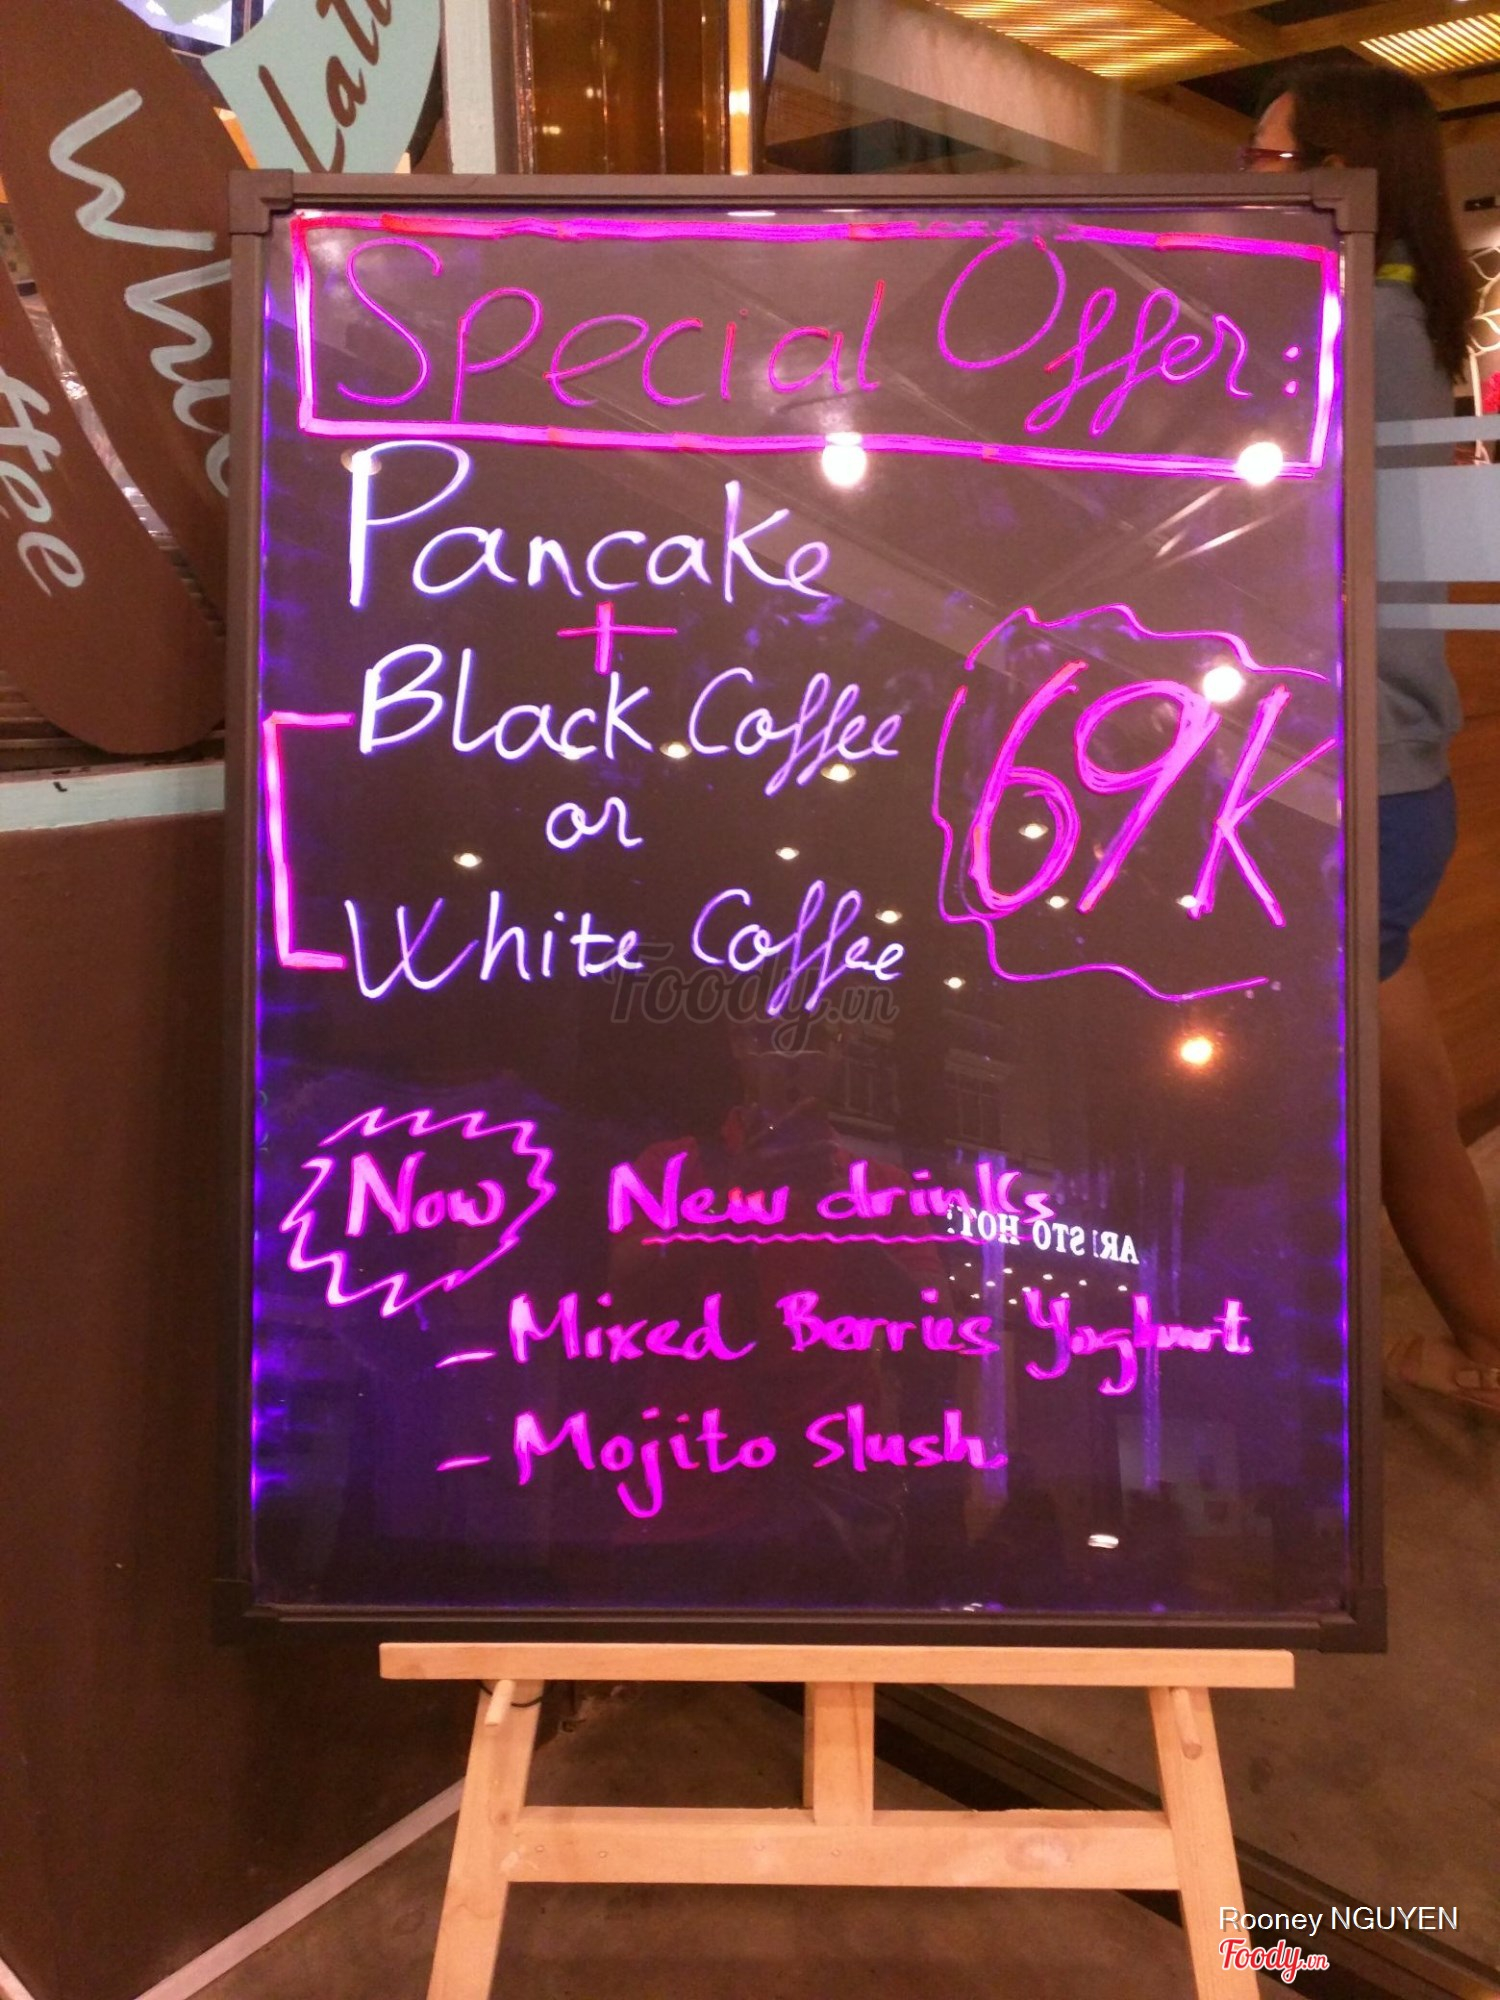 Latt
Whi
ffee
Special Offer:
Pancake
+
Black Coffee
or
White Coffee
69K
Foody.vn
Now
New drinks
ARISTO HOT
- Mixed Berries Yoghurt
- Mojito Slush
Rooney NGUYEN
Foody.vn